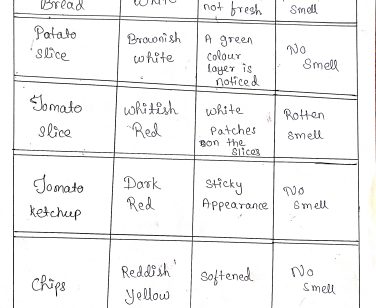 Bread White not fresh smell
Patato
slice
Brownish
white
A green
colour
layer is
noticed
No
Smell
Tomato
slice
Whitish
Red
white
Patches
on the
slices
Rotten
smell
Tomato
ketchup
Dark
Red
Sticky
Appearance
No
Smell
Chips
Reddish
Yellow
Softened
No
Smell